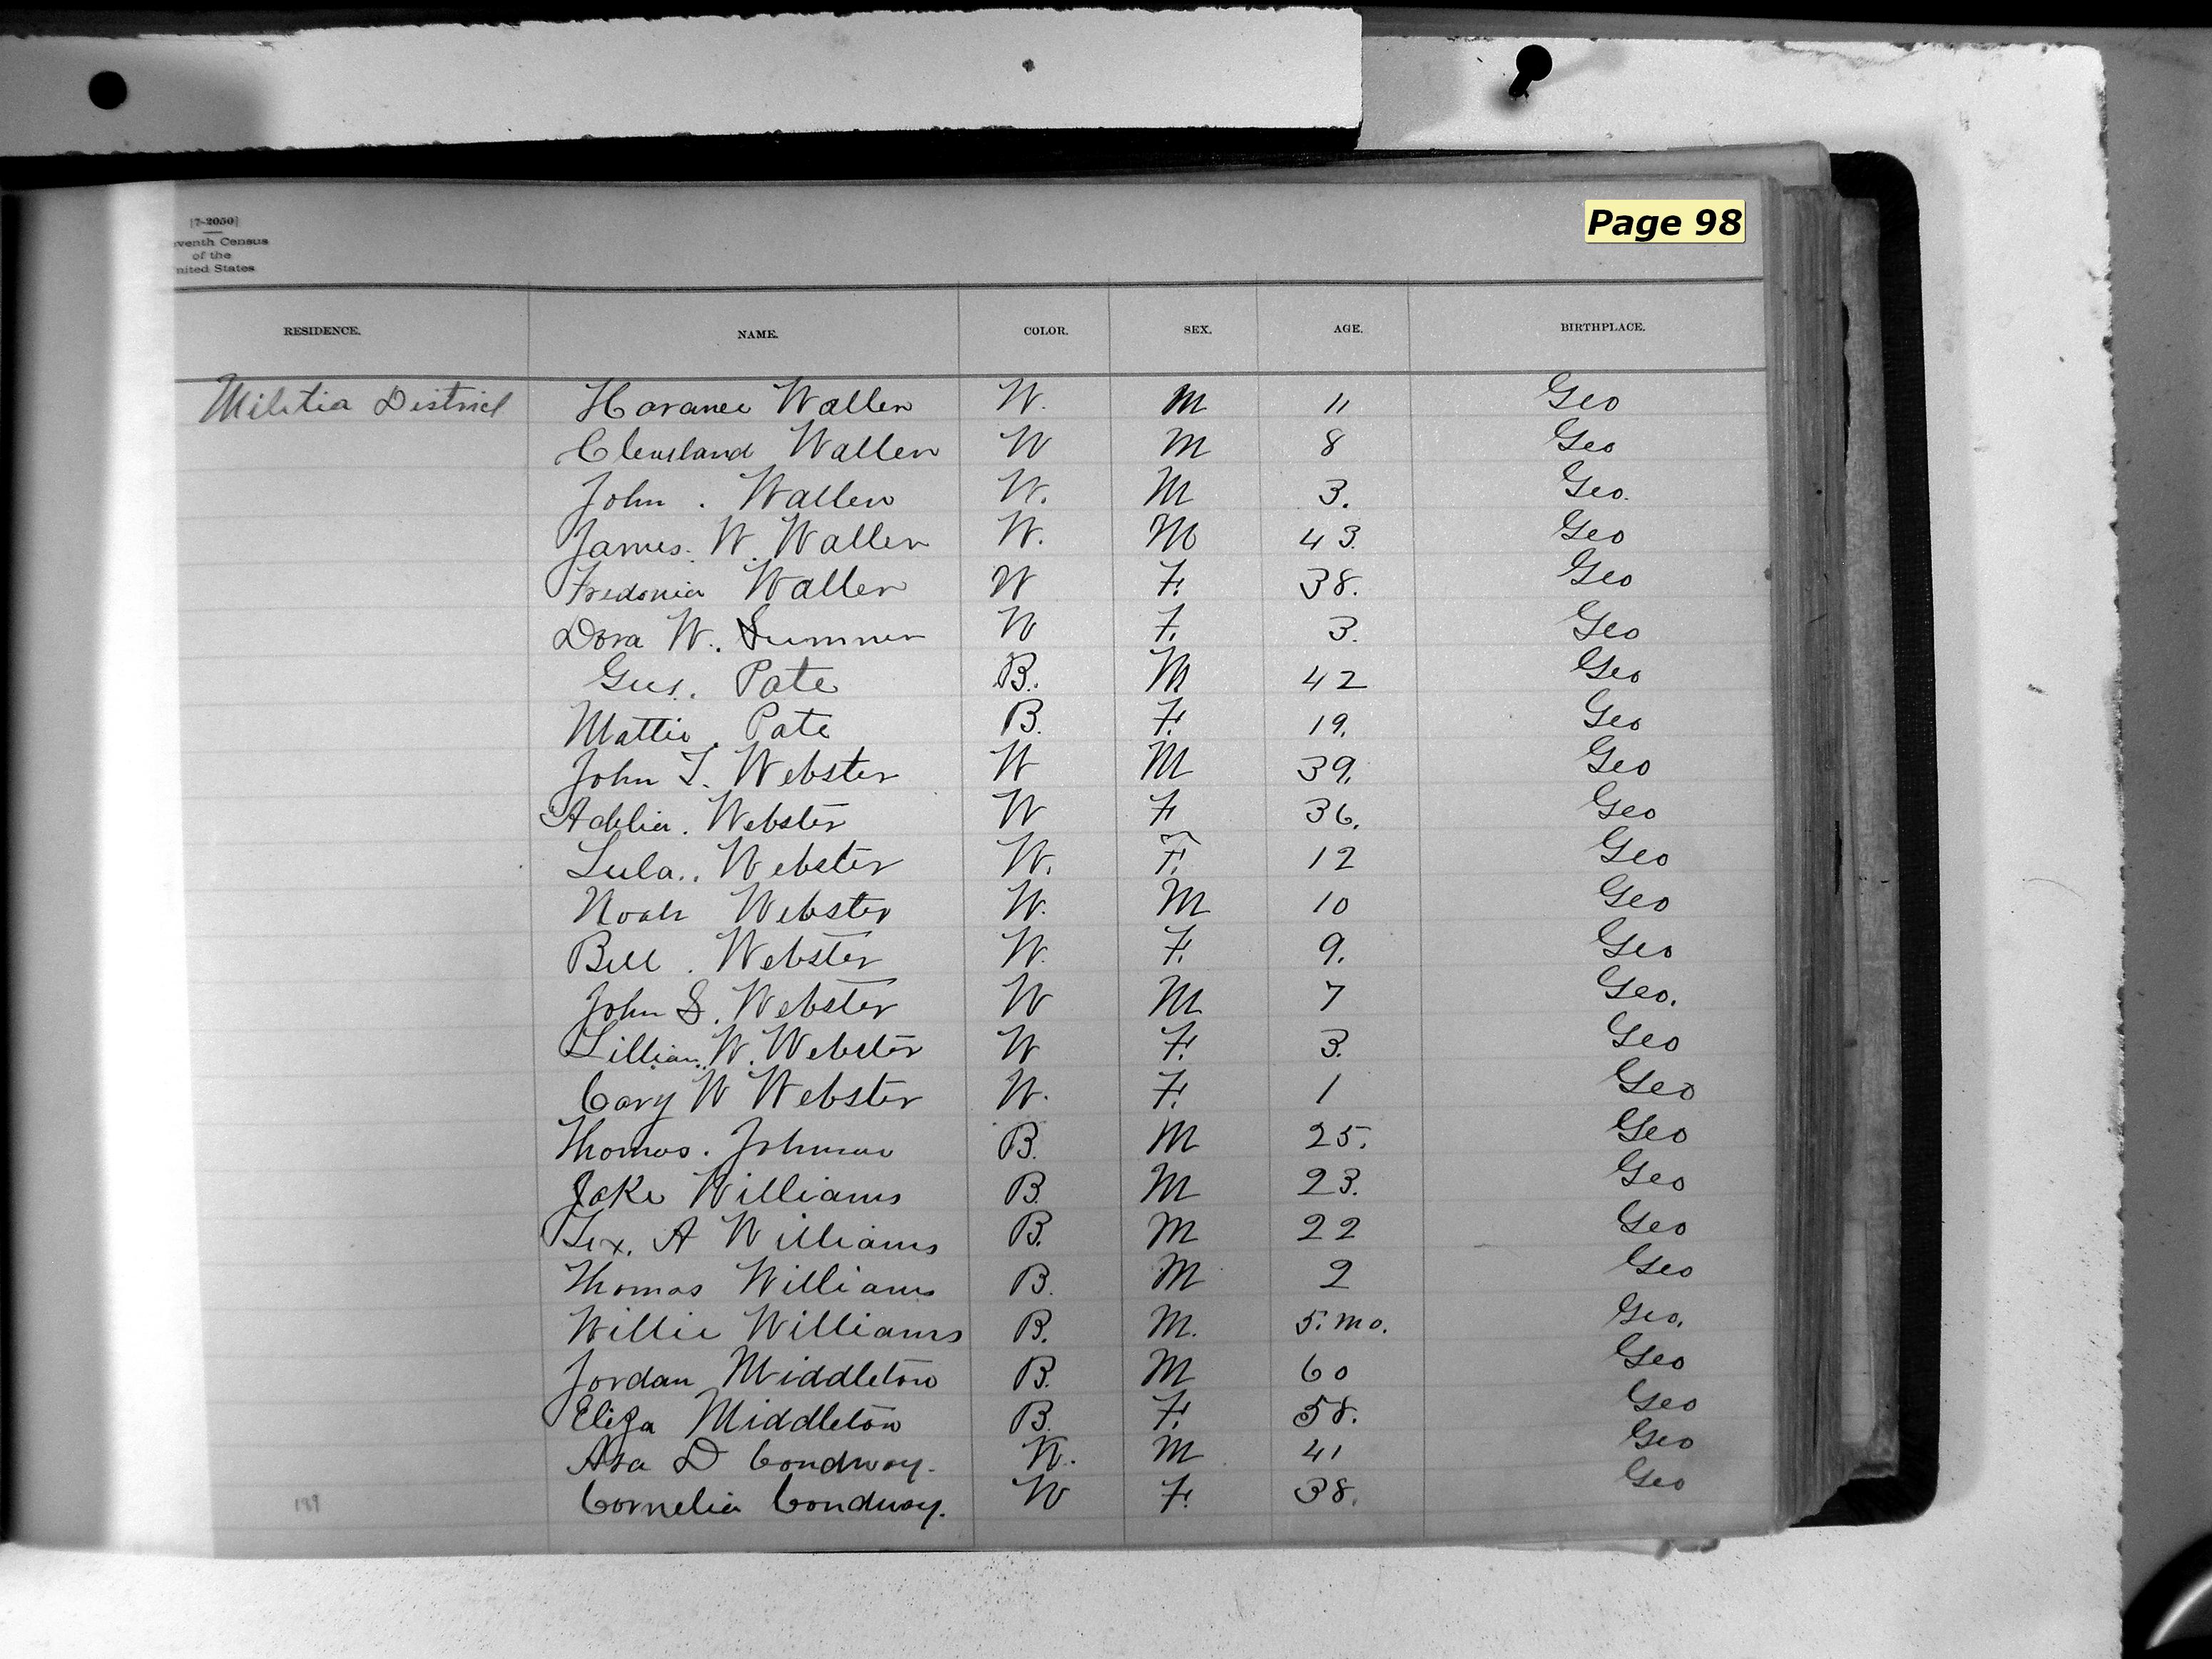 Page 98
[7-2050]
eventh Census
of the
nited States
RESIDENCE. NAME. COLOR. SEX. AGE. BIRTHPLACE.
Militia District Horance Wallen W. M 11 Geo
Cleveland Wallen W M 8 Geo
John . Wallen W. M 3. Geo.
James. W. Wallen W. M 43. Geo
Fredonia Wallen W F. 38. Geo
Dora W. Sumner W F. 3. Geo
Gus. Pate B. M 42 Geo
Mattie. Pate B. F. 19. Geo
John T. Webster W M 39. Geo
Adelia. Webster W F 36. Geo
Lula.. Webster W. F. 12 Geo
Noah Webster W. M 10 Geo
Bell . Webster W. F. 9. Geo
John S. Webster W M 7 Geo.
Lillian.. W. Webster W F. 3. Geo
Cary W Webster W. F. 1 Geo
Thomas. Johnson B. M 25. Geo
Jake Williams B. M 23. Geo
Lex. A Williams B. M 22 Geo
Thomas Williams B. M 2 Geo
Willie Williams B. M. 5. mo. Geo.
Jordan Middleton B. M 60 Geo
Eliza Middleton B. F. 58. Geo
Asa D Condway. W. M 41 Geo
199 Cornelia Condway. W F. 38. Geo